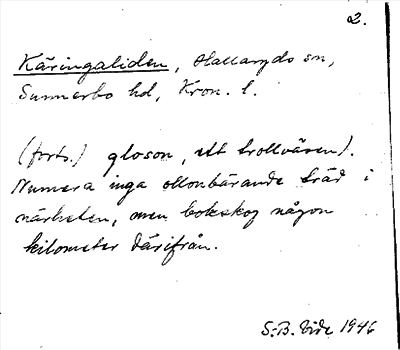 2.
Käringaliden, Hallaryds sn,
Sunnerbo hd, Kron. l.
(forts.) gloson, ett trollväsen).
Numera inga ollonbärande träd i
närheten, men bokskog någon
kilometer därifrån.
S:B. Vide 1946